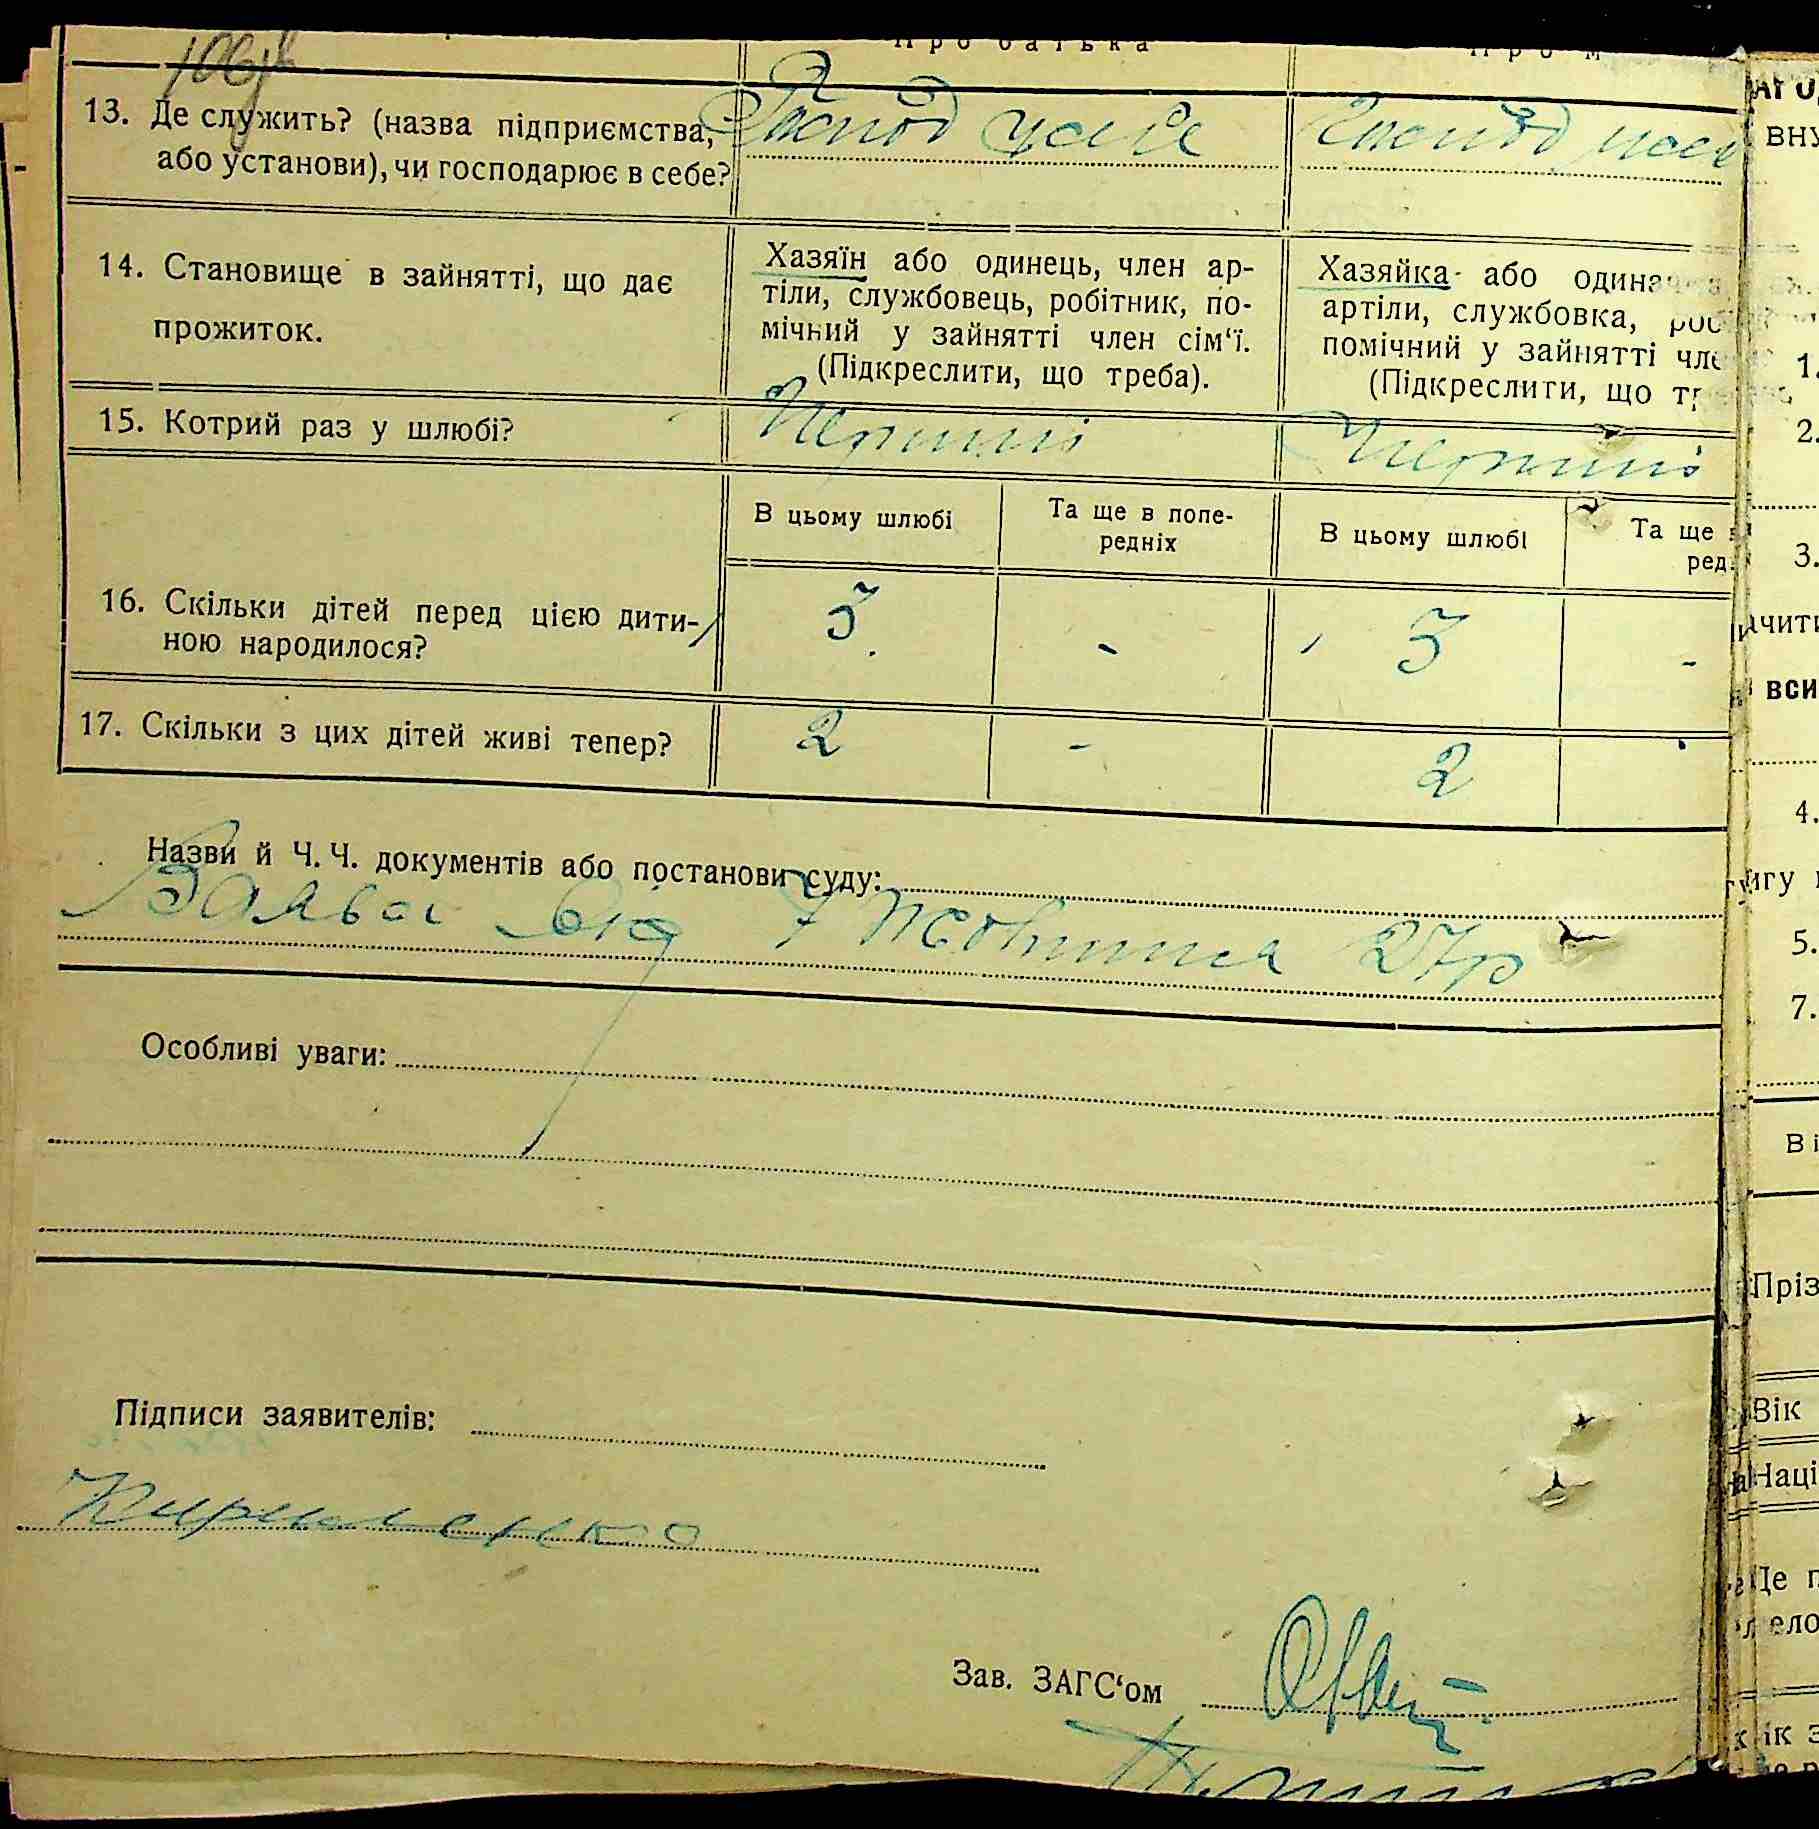 Про батька Про м
13. Де служить? (назва підприємства, або установи), чи господарює в себе?
Господ Господ
14. Становище в зайнятті, що дає прожиток.
Хазяїн або одинець, член ар-
тіли, службовець, робітник, по-
мічний у зайнятті член сім‘ї.
(Підкреслити, що треба).
Хазяйка або одинач
артіли, службовка, роб
помічний у зайнятті чле
(Підкреслити, що тр
15. Котрий раз у шлюбі? Перший Перший
В цьому шлюбі
Та ще в попе-
редніх
В цьому шлюбі
Та ще в
ред
16. Скільки дітей перед цією дити-
ною народилося?
3 - 3 -
17. Скільки з цих дітей живі тепер? 2 - 2
Назви й Ч. Ч. документів або постанови суду:
Заява від 7 Жовтня 27р
Особливі уваги:
Підписи заявителів:
Кириленко
Зав. ЗАГС‘ом
вну
1.
2.
3.
ачити
вси
4.
игу
5.
7.
Ві
Пріз
Вік
Наці
Де п
ело
ік з